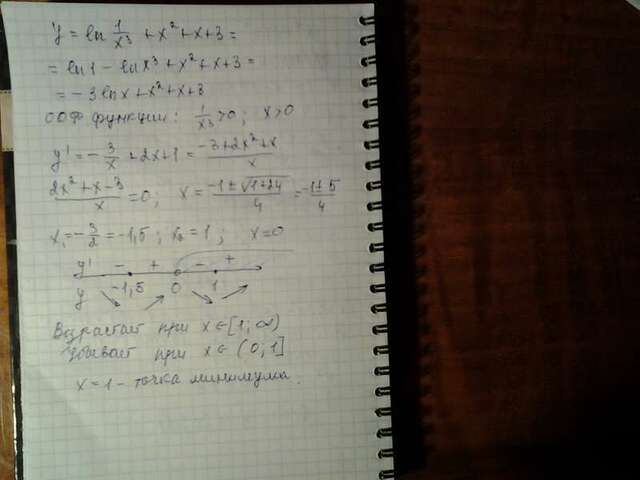 y = ln 1/x³ + x² + x + 3 =
= ln1 - lnx³ + x² + x + 3 =
= -3lnx + x² + x + 3
ООФ функции: 1/x³ > 0; x > 0
y' = -3/x + 2x + 1 = (-3 + 2x² + x)/x
(2x² + x - 3)/x = 0; x = (-1 ± √(1+24))/4 = (-1 ± 5)/4
x₁ = -3/2 = -1,5; x₂ = 1; x = 0
y' - + - +
y -1,5 0 1
Возрастает при x ∈ [1; ∞)
Убывает при x ∈ (0; 1]
x = 1 - точка минимума.